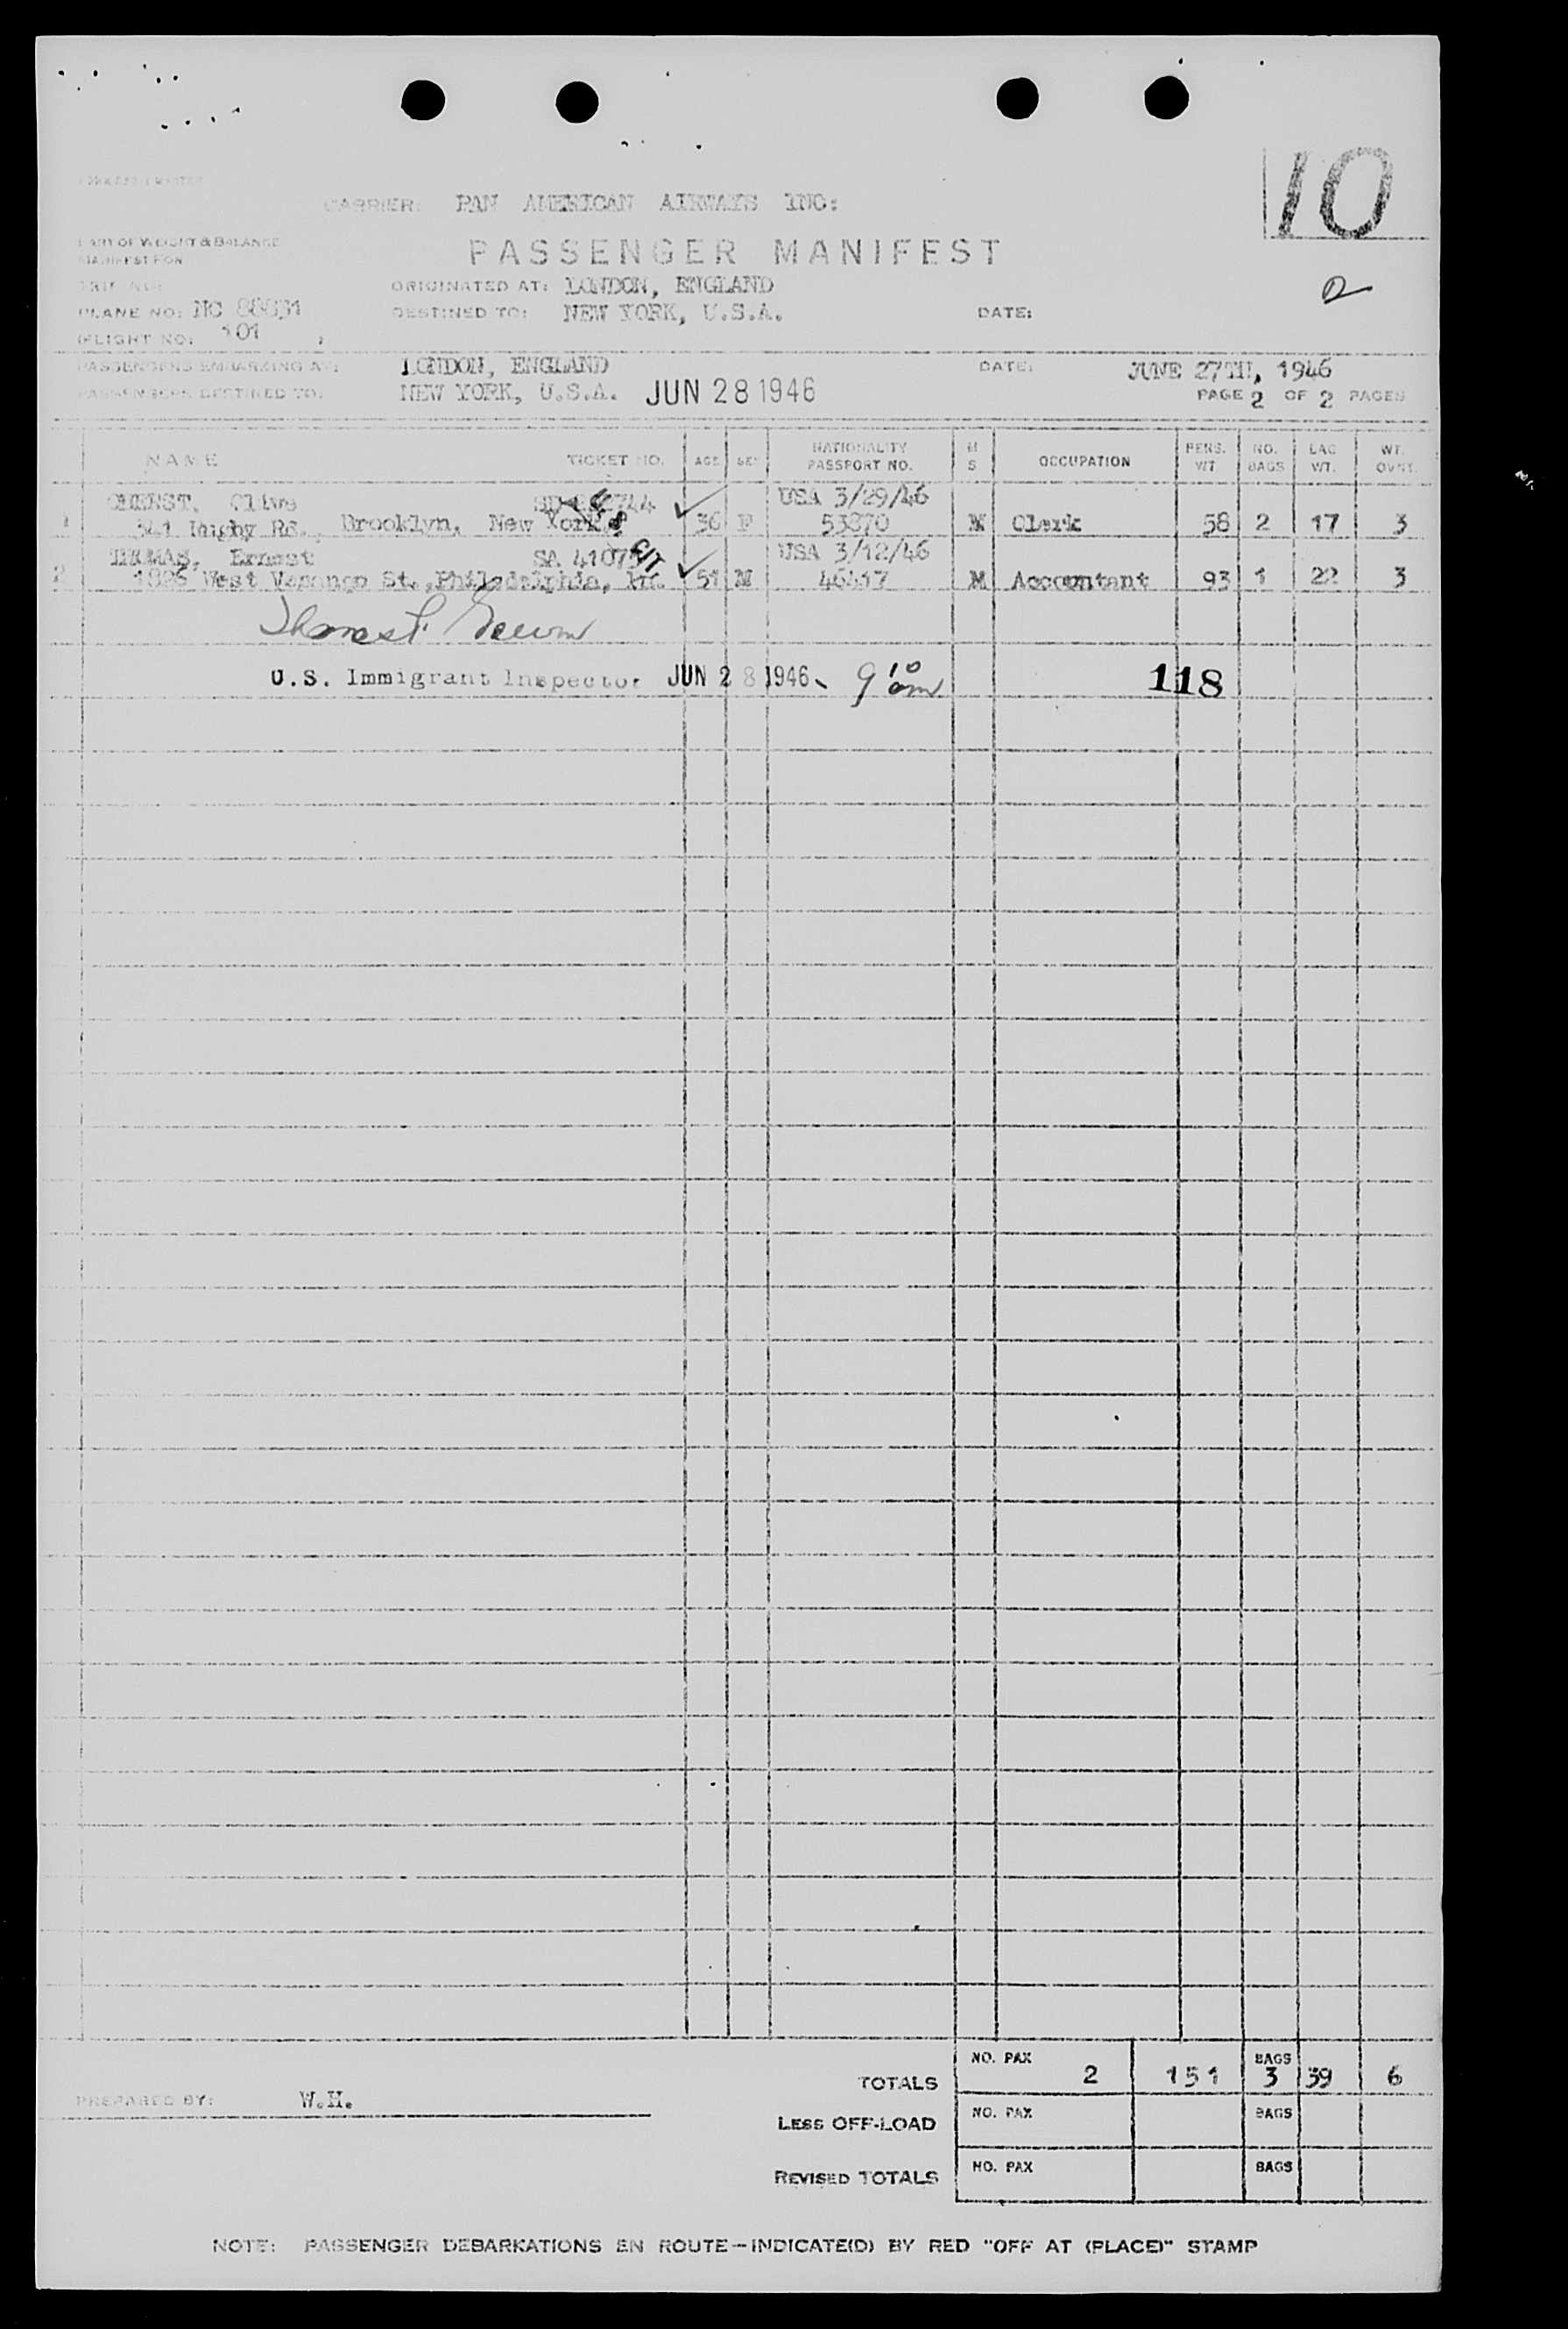 10
CARRIER: PAN AMERICAN AIRWAYS INC:
PART OF WEIGHT & BALANCE
MANIFEST FOR
PASSENGER MANIFEST
2
TRIP NO:
ORIGINATED AT: LONDON, ENGLAND
PLANE NO: NC
DESTINED TO: NEW YORK, U.S.A. DATE:
FLIGHT NO: 101
PASSENGERS EMBARKING AT: LONDON, ENGLAND DATE: JUNE 27TH, 1946
PASSENGERS DESTINED TO: NEW YORK, U.S.A. JUN 28 1946 PAGE 2 OF 2 PAGES
NAME TICKET NO. AGE SEX NATIONALITY PASSPORT NO. M S OCCUPATION PERS. WT. NO. BAGS LAG WT. WT. OVWT.
Olive USA 3/29/46
1 Rd., Brooklyn, New York 36 F 53870 M Clerk 58 2 17 3
U.S. CIT
Ernest SA USA 3/12/46
2 West Venango St., Philadelphia, 51 M 46417 M Accountant 93 1 22 3
U.S. Immigrant Inspector JUN 28 1946 9 10 am 118
TOTALS NO. PAX 2 151 BAGS 3 39 6
PREPARED BY: W.H.
LESS OFF-LOAD NO. PAX BAGS
REVISED TOTALS NO. PAX BAGS
NOTE: PASSENGER DEBARKATIONS EN ROUTE - INDICATE(D) BY RED "OFF AT (PLACE)" STAMP